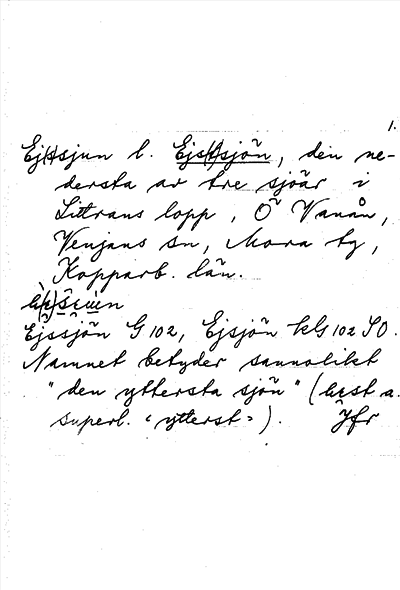 1.
Ej(s)sjun l. Ejs(t)sjön, den ne-
dersta av tre sjöar i
Littrans lopp, Ö Vanån,
Venjans sn, Mora tg,
Kopparb. län.
Ejssjön G 102, Ejsjön kG 102 SO.
Namnet betyder sannolikt
"den yttersta sjön" ( a.
superl. "ytterst"). Jfr